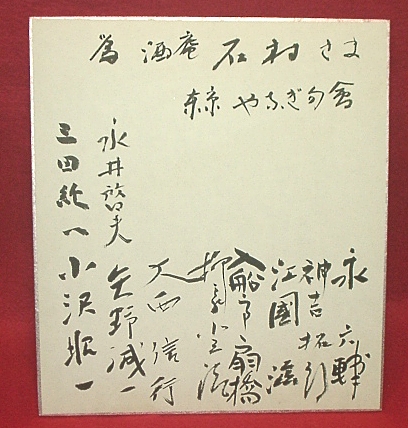 為 酒庵 石村さま
東京 やなぎ句會
永六輔
神吉拓郎
江國滋
入船亭扇橋
柳家小三治
大西信行
永井啓夫
矢野誠一
三田純一
小沢昭一